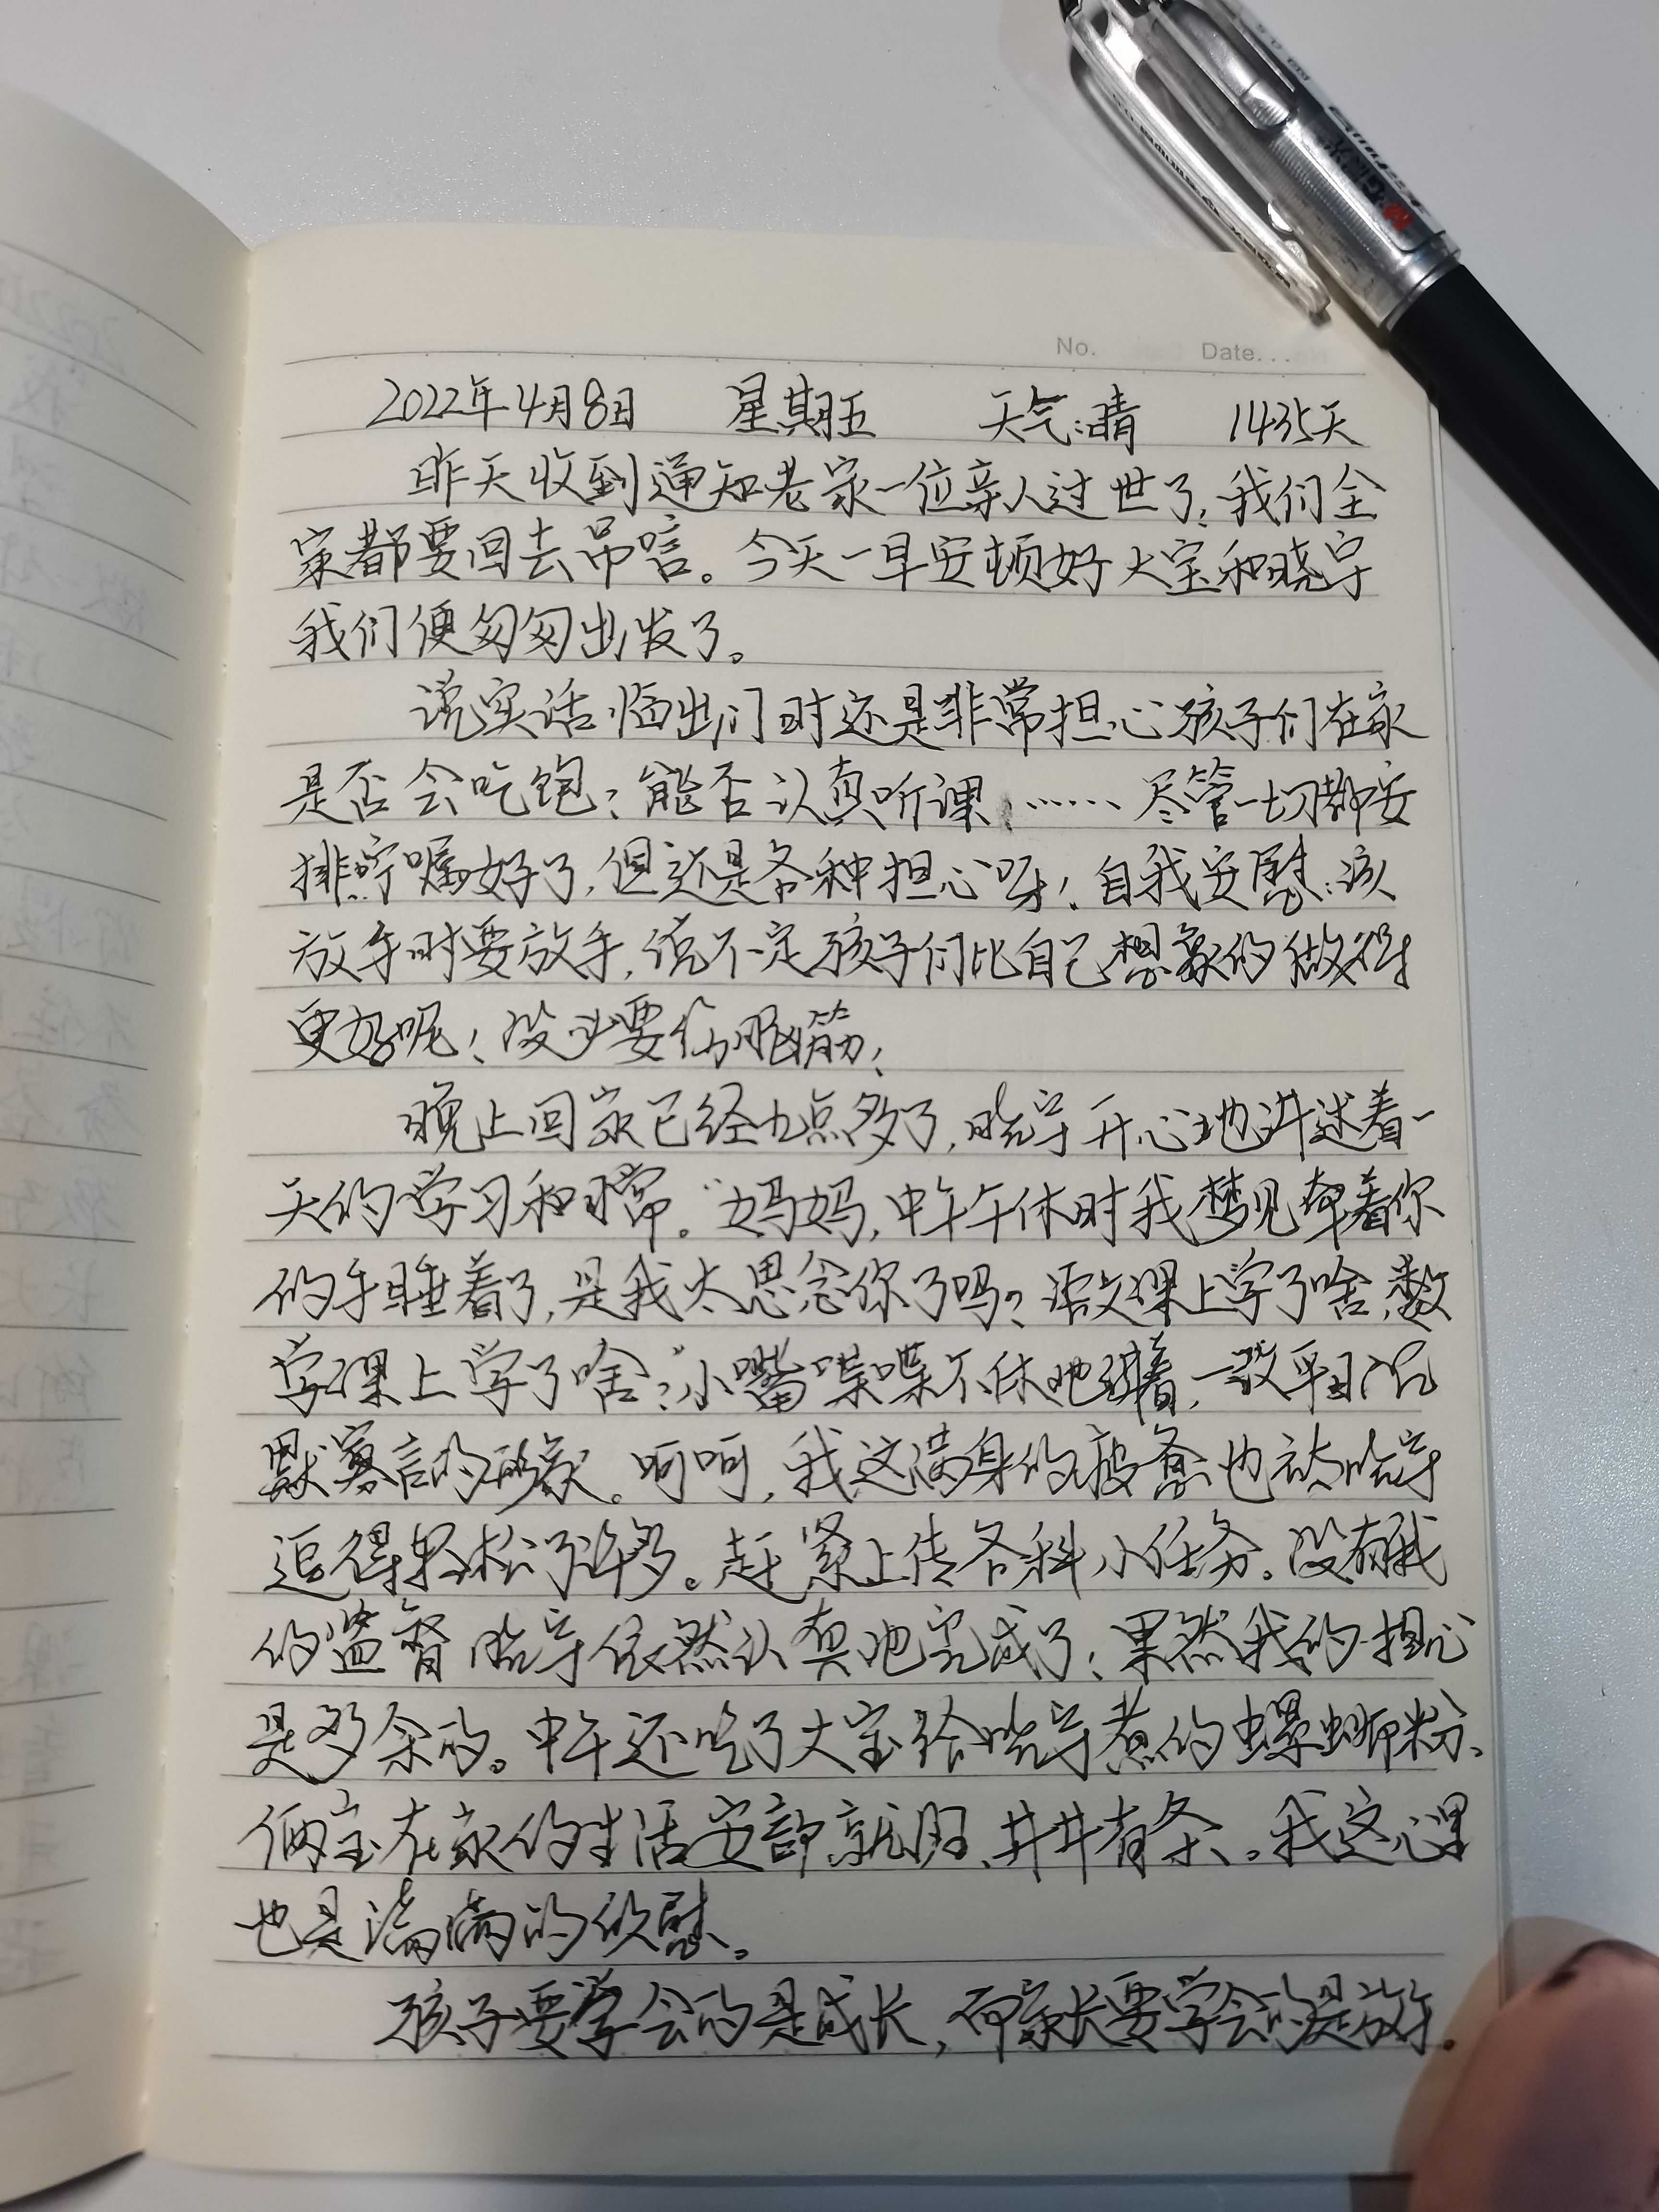 No. Date...
2022年4月8日 星期五 天气:晴 1435天
昨天收到通知老家一位亲人过世了,我们全
家都要回去吊唁。今天一早安顿好大宝和晓宇
我们便匆匆出发了。
说实话,临出门时还是非常担心孩子们在家
是否会吃饱?能否认真听课!……尽管一切都安
排咛嘱好了,但还是各种担心呀!自我安慰:该
放手时要放手,说不定孩子们比自己想象的做得
更好呢!没必要伤脑筋!
晚上回家已经九点多了,晓宇开心地讲述着一
天的学习和日常。“妈妈,中午午休时我梦见牵着你
的手睡着了,是我太思念你了吗?语文课上学了啥,数
学课上学了啥?”小嘴喋喋不休地讲着,一改平日沉
默寡言的形象。呵呵,我这满身的疲惫也被晓宇
逗得轻松了许多。赶紧上传各科小任务。没有我
的监督晓宇依然认真地完成了!果然我的担心
是多余的。中午还吃了大宝给晓宇煮的螺蛳粉、
俩宝在家的生活安静就绪、井井有条。我这心里
也是满满的欣慰。
孩子要学会的是成长,而家长要学会的是放手。